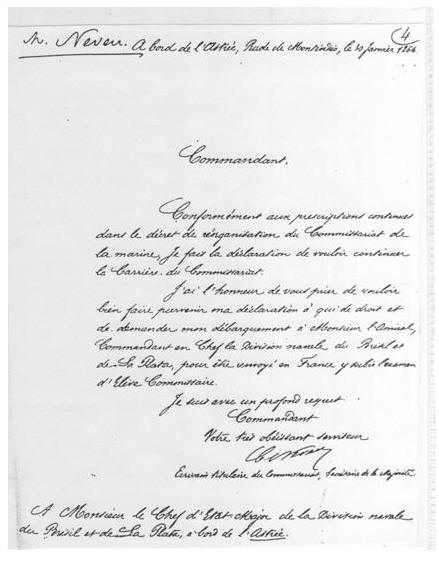 M. Neveu. A bord de l'Astrée, Rade de Montévidéo, le 10 Janvier 1864.
4
Commandant.
Conformément aux prescriptions contenues
dans le décret de réorganisation du Commissariat de
la marine, Je fais la déclaration de vouloir continuer
la Carrière du Commissariat.
J'ai l'honneur de vous prier de vouloir
bien faire parvenir ma déclaration à qui de droit et
de demander mon débarquement à Monsieur l'Amiral,
Commandant en Chef la Division navale du Brésil et
de La Plata, pour être renvoyé en France y subir l'examen
d'Elève Commissaire.
Je suis avec un profond respect
Commandant
Votre très obéissant serviteur
Ecrivain titulaire du Commissariat, Secrétaire de la Majorité
A Monsieur le Chef d'Etat-Major de la Division navale
du Brésil et de La Plata, à bord de l'Astrée.